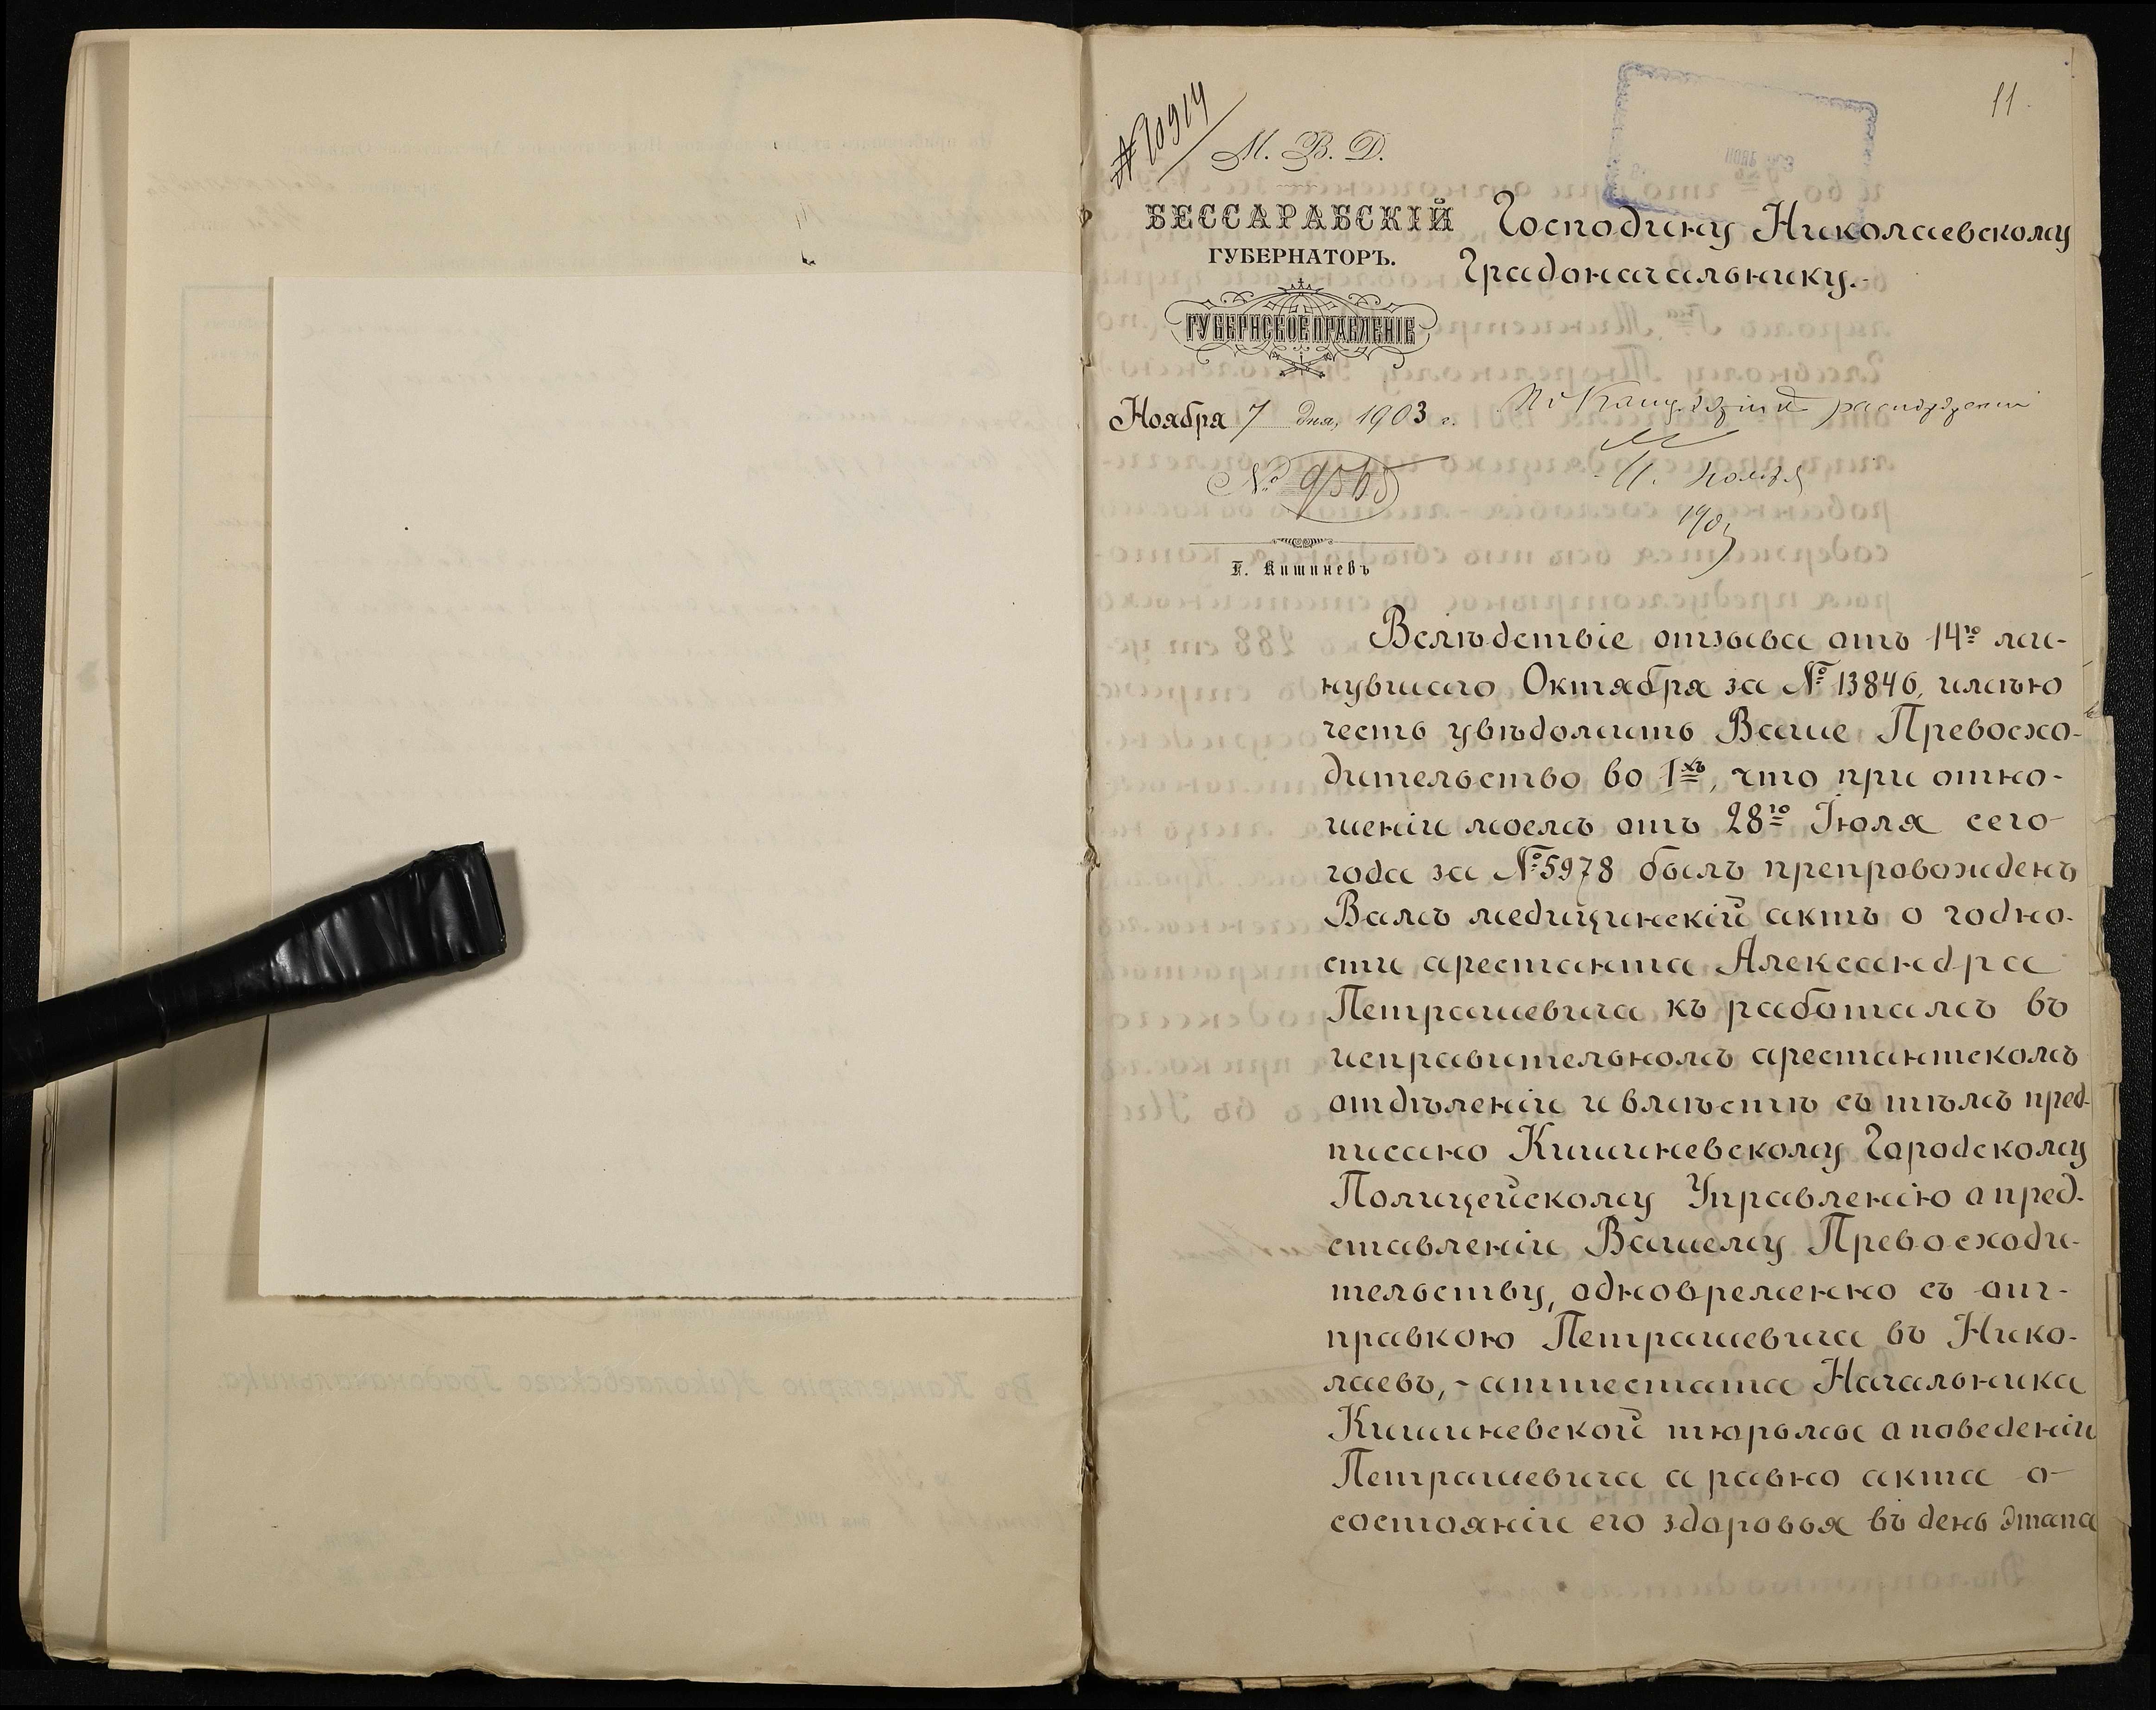 11.
№ 10914
М. В. Д.
БЕССАРАБСКІЙ
ГУБЕРНАТОРЪ.
ГУБЕРНСКОЕ ПРАВЛЕНІЕ
Ноября 7 дня, 1903 г.
№ 9565
Г. Кишиневъ
Господину Николаевскому
Градоначальнику.-
11. Ноября
1903
Вслѣдствіе отзыва отъ 14го ми-
нувшаго Октября за № 13846, имѣю
честь увѣдомить Ваше Превосхо-
дительство во 1хъ, что при отно-
шеніи моемъ отъ 28го Іюля сего
года за № 5978 былъ препровожденъ
Вамъ медицинскій актъ о годно-
сти арестанта Александра
Петрашевича къ работамъ въ
исправительномъ арестантскомъ
отдѣленіи и вмѣстѣ съ тѣмъ пред-
писано Кишиневскому Городскому
Полицейскому Управленію о пред-
ставленіи Вашему Превосходи-
тельству, одновременно съ от-
правкою Петрашевича въ Нико-
лаевъ,- аттестата Начальника
Кишиневской тюрьмы о поведеніи
Петрашевича а равно акта о
состояніи его здоровья въ день этапа